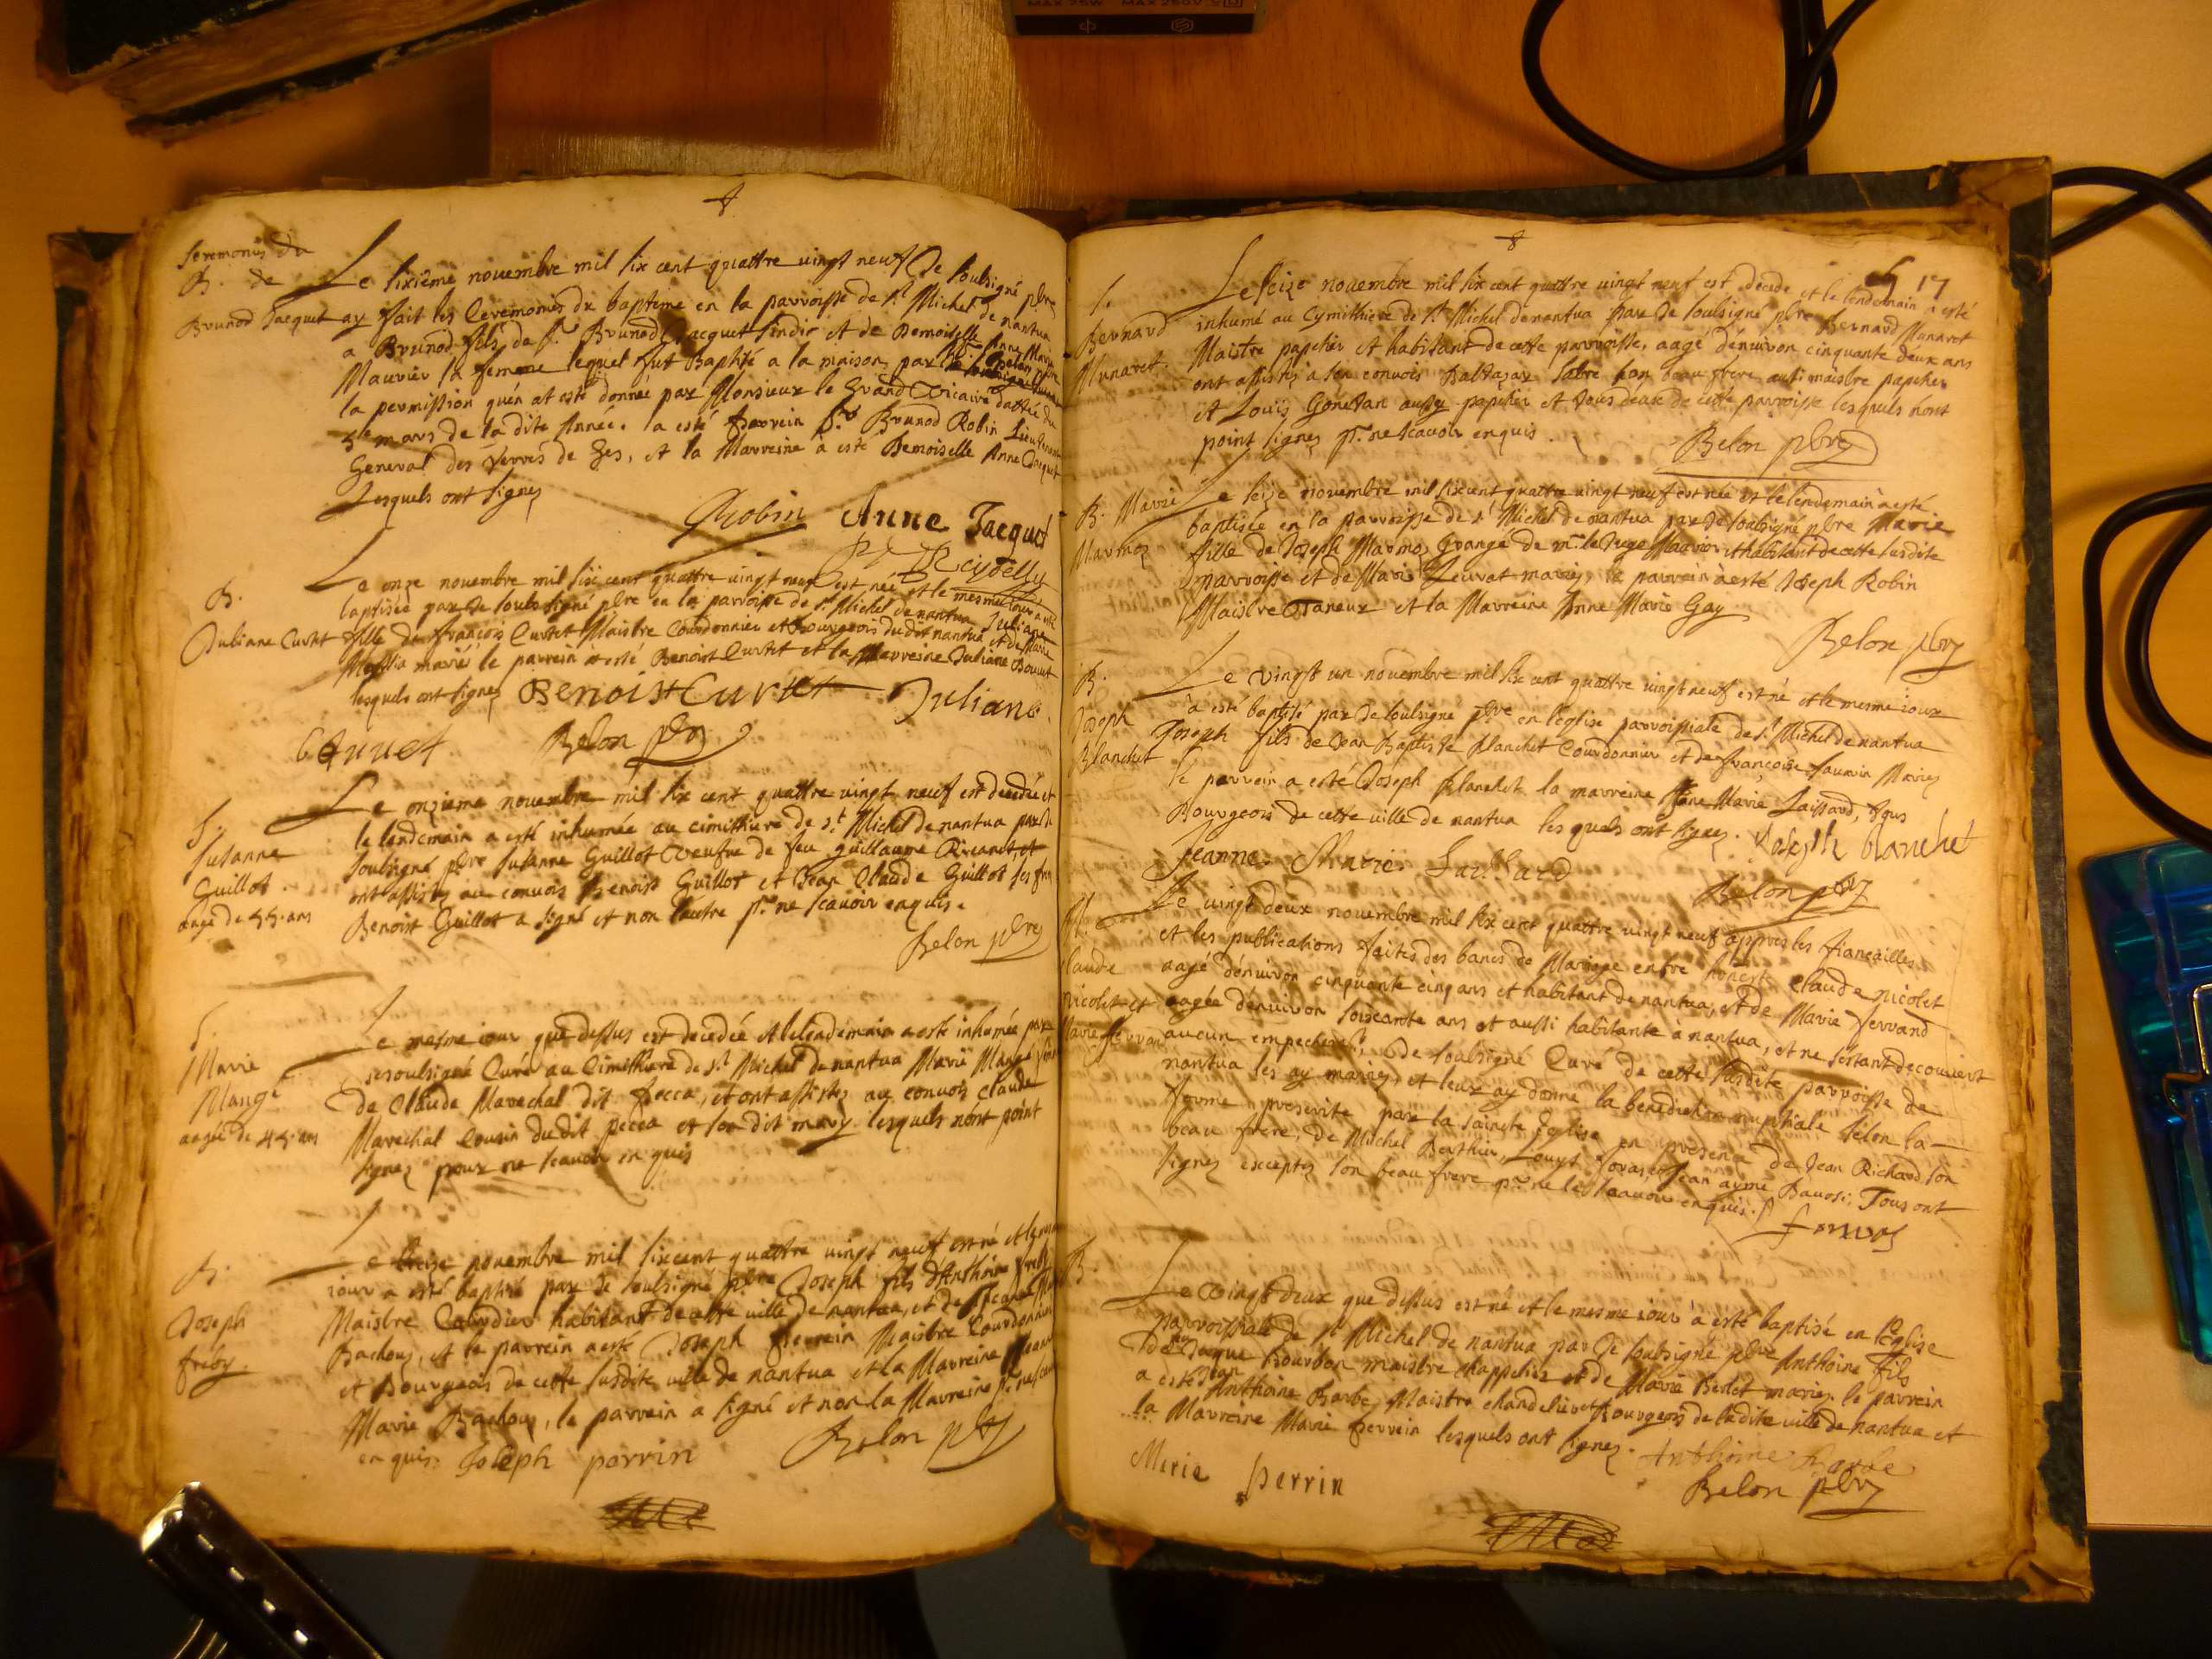 MAX 75W MAX 250V
Seremonis du
B. de
Brunod Jacquet
Le sixième novembre mil six cent quattre vingt neuf Je soubsigné pbre
ay fait les Ceremonies du baptême en la parroisse de st Michel de nantua
a Brunod fils de Sr Brunod Jacquet sindic et de Demoiselle Anne Marie
Mauvier sa femme lequel fut Baptisé a la maison par
la permission quén at esté donnée par Monsieur le Grand Vicaire dattée du
mars de la dite Année. a esté parrein Sr Brunod Robin Lieutenant
General des Terres de Ges, et la Marreine à esté Demoiselle Anne Jacquet
Lesquels ont signez
Robin Anne Jacquet
B.
Juliane Curtet
Le onze novembre mil six cent quattre vingt neuf est née et le mesme iour a esté
baptisée par Je soubsigné pbre en la parroisse de st Michel de nantua Juliane
fille de françois Curtet Maistre Courdonnier et Bourgeois dudit nantua et de Marie
mariés le parrein a esté Benoist Curtet et la Marreine Juliane
lesquels ont signez Benoist Curtet Juliane
Belon pbre
S.
Susanne
Guillot.
aagé de 55 ans
Le onzieme novembre mil six cent quattre vingt neuf est decedée et
le lendemain a esté inhumée au cimithiere de st Michel de nantua par Je
soubsigné pbre Susanne Guillot veufve de feu guillaume et
ont assistez au convois Benoist Guillot et Jean Claude Guillot ses freres
Benoist Guillot a signé et non l'autre pr ne scavoir enquis.
Belon pbre
S.
Marie
Mange
aagée de 45 ans
Le mesme iour que dessus est decedée et le lendemain a esté inhumée par
Je soulsigné Curé au Cimithiere de st Michel de nantua Marie Mange
de Claude Marechal dit pecca, et ont assistez au convoy Claude
Marechal Cousin dudit pecca et son dit mary lesquels nont point
signez pour ne scavoir enquis
B.
Joseph
freby.
Le treize novembre mil six cent quattre vingt neuf est né et le mesme
iour a esté baptisé par Je soulsigné pbre Joseph fils d'Anthoine freby
Maistre habitant de cette ville de nantua, et de
Bachoux, et le parrein a esté Joseph perrein Maistre Courdonnier
et Bourgeois de cette susdite ville de nantua et la Marreine
Marie Bachoux, le parrein a signé et non la Marreine pr ne scavoir
enquis Joseph perrin Belon pbre
17
S.
Bernard
Munaret.
Le seize novembre mil six cent quattre vingt neuf est decede et le lendemain a esté
inhumé au Cymithiere de st Michel de nantua par Je soulsigné pbre Bernard Munaret
Maistre papetier et habitant de cette parroisse, aagé dénuiron cinquante deux ans
ont assistez a son convois Baltazar Sabre son beau frere aussi maistre papetier
et Louis aussy papetier et tous deux de cette parroisse lesquels nont
point signez pr ne scavoir enquis.
Belon pbre
B. Marie
Marmoz
Le seize novembre mil six cent quattre vingt neuf est née et le lendemain a esté
baptisée en la parroisse de st Michel de nantua par Je soulsigné pbre Marie
fille de Joseph Marmoz Grangé de mr le Juge et habitant de cette susdite
parroisse et de Marie mariez, le parrein a esté Joseph Robin
Maistre Taneur et la Marreine Anne Marie Gay
Belon pbre
B.
Joseph
Blanchet
Le vingt un novembre mil six cent quattre vingt neuf est né et le mesme iour
à esté baptisé par Je soulsigné pbre en leglise parroissiale de st Michel de nantua
Joseph fils de Jean Baptiste Planchet Courdonnier et de françoise Mariez
le parrein a esté Joseph Planchet la marreine Jane Marie Laissard, tous
Bourgeois de cette ville de nantua lesquels ont signez. Joseph blanchet
Jeanne Marie
Belon pbre
M.
Claude
nicolet et
Marie ferrand
Le vingt deux novembre mil six cent quattre vingt neuf appres les fiançailles
et les publications faites des bancs de Mariage entre honest Claude nicolet
aagé dénuiron cinquante cinq ans et habitant de nantua, et de Marie ferrand
aagée dénuiron soixante ans et aussi habitante a nantua, et ne s'estant decouvert
aucun empechement, Je soulsigné Curé de cette susdite parroisse de
nantua les ay mariez, et leur ay donné la benediction nuptiale selon la
forme prescrite par la saincte Eglise en presence de Jean Richard son
beau frere, de Michel Berthier, Louys Jean aymé Tous ont
signez exceptez son beau frere pr ne le scavoir enquis.
B.
Le vingt deux que dessus est né et le mesme iour à esté baptisé en l'Eglise
parroissiale de st Michel de nantua par Je soulsigné pbre Anthoine fils
de Jaque Bourbon maistre chappelier et de Marie mariez. le parrein
a esté Jean Anthoine Barbe Maistre chandelier et Bourgeois de ladite ville de nantua et
la Marreine Marie perrein lesquels ont signez. Anthoine Barbe
Merie perrin Belon pbre